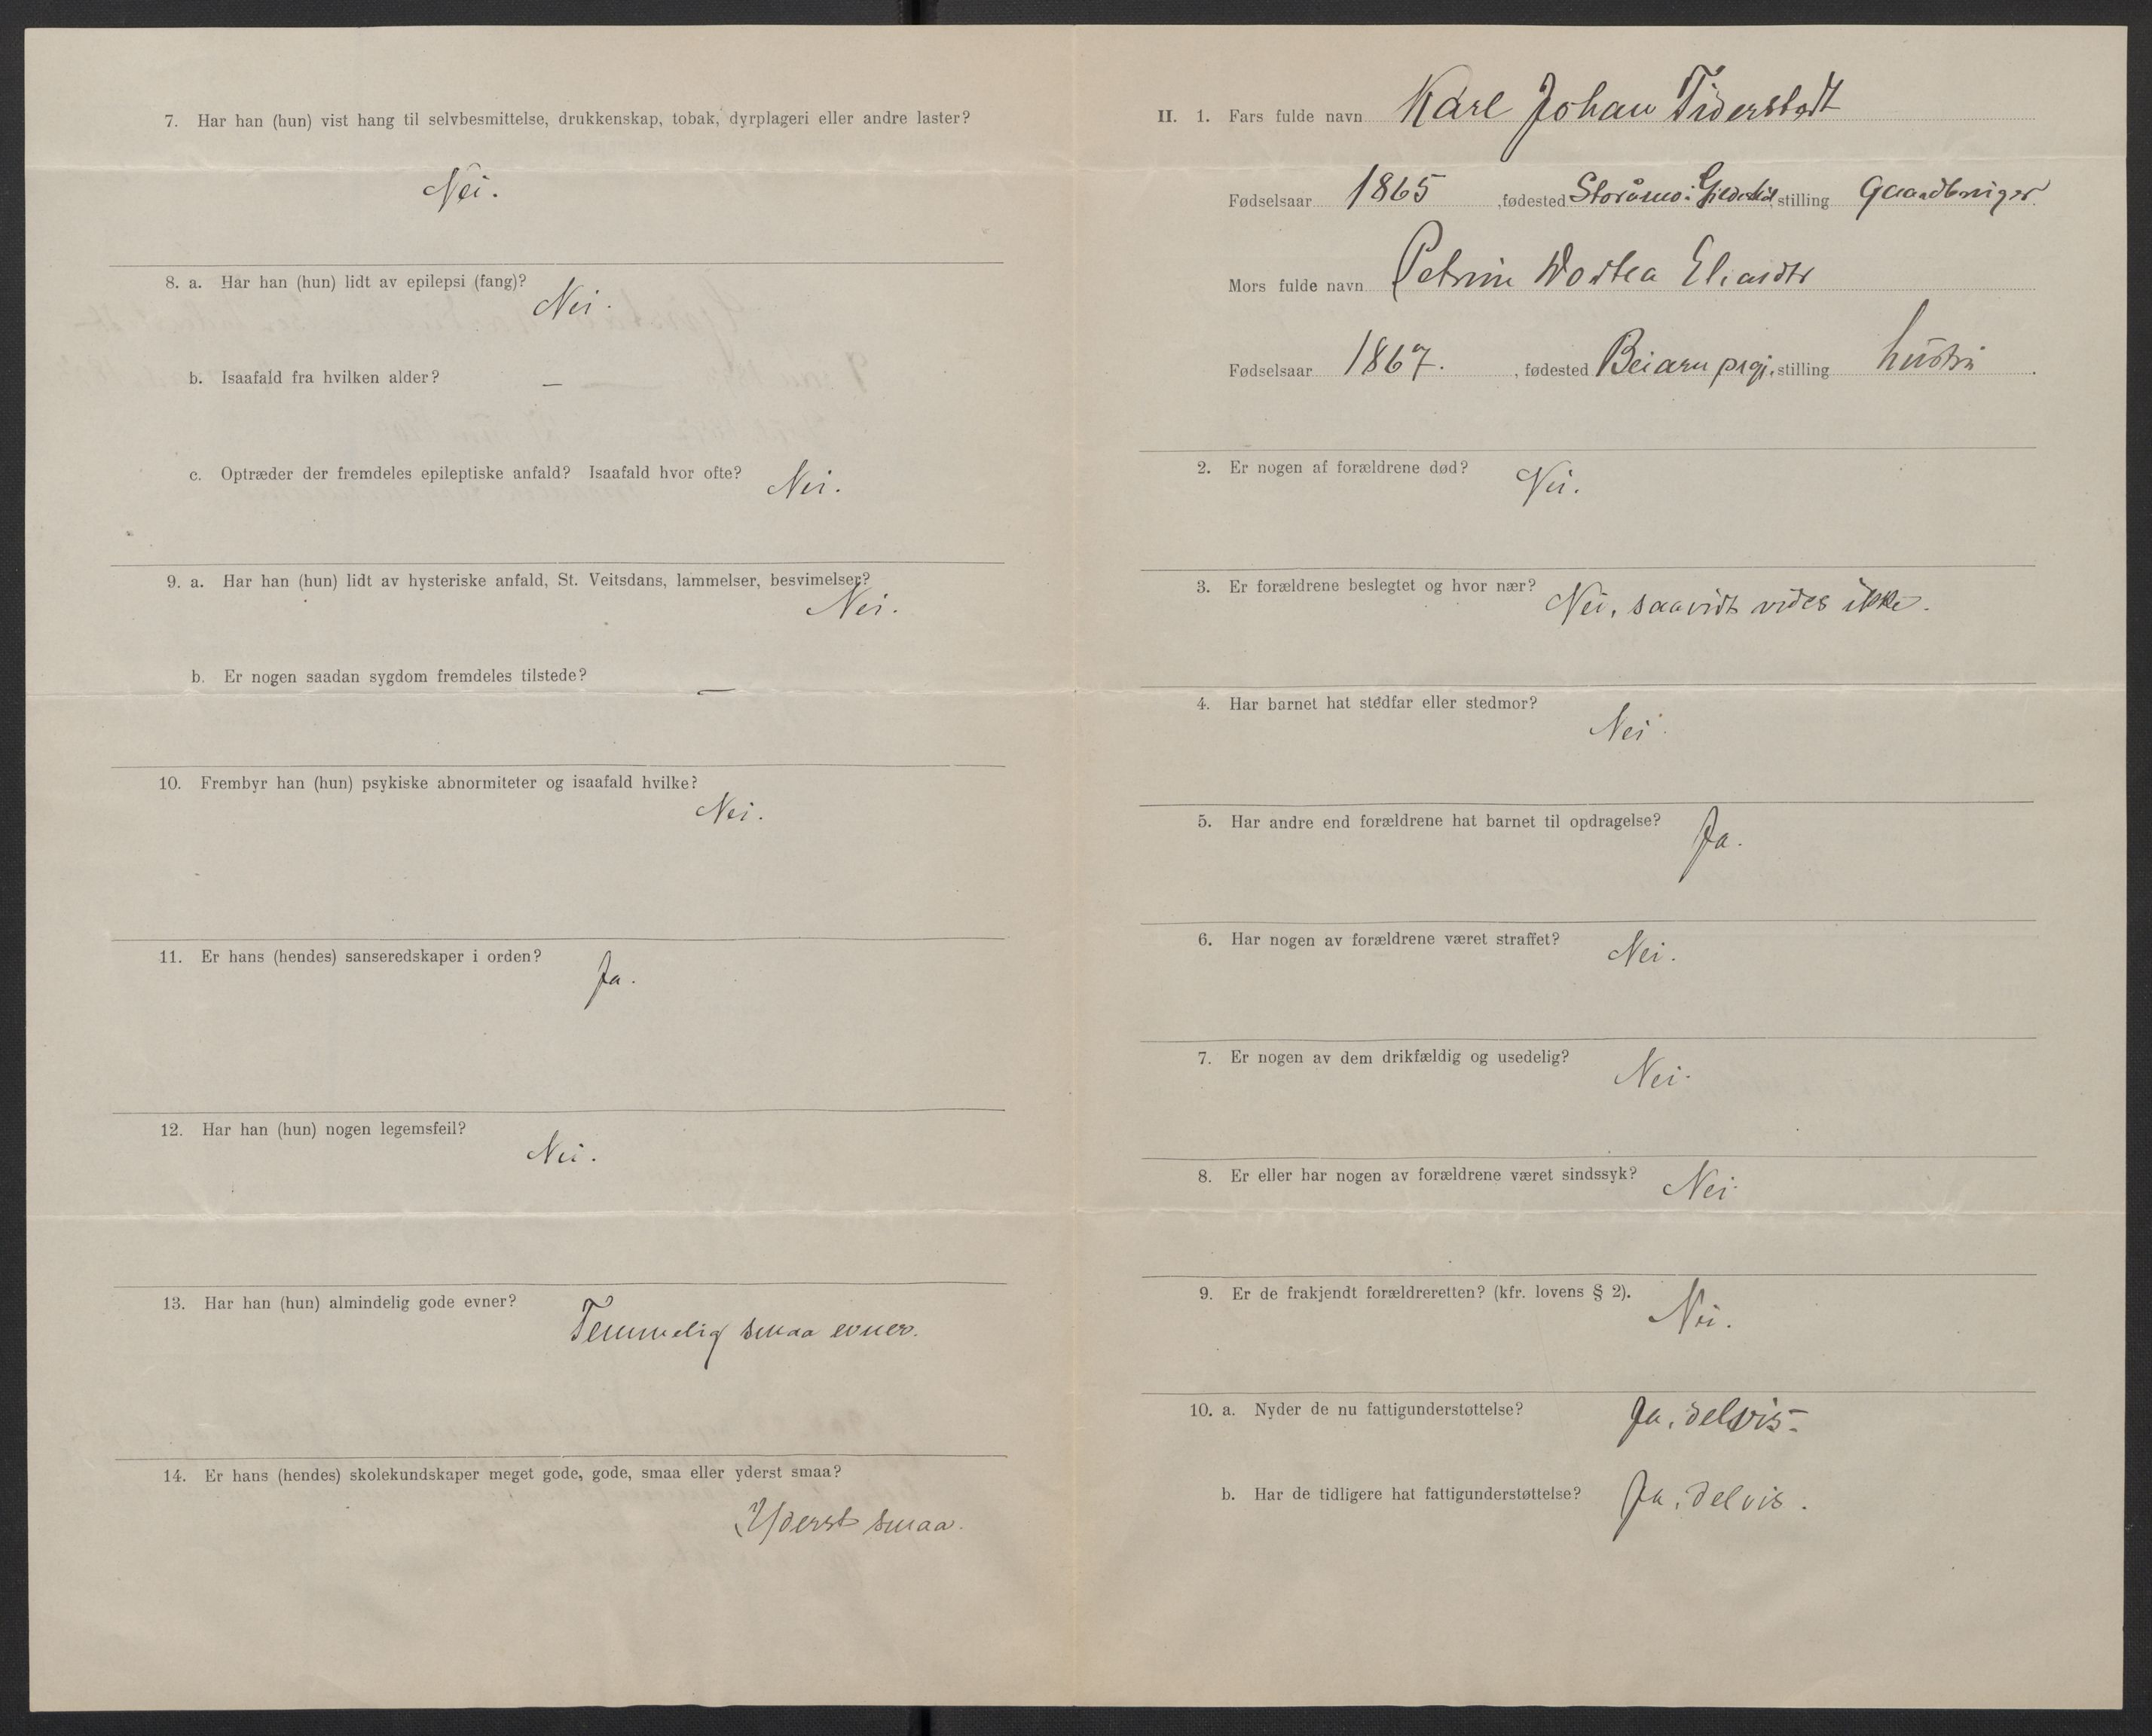 7. Har han (hun) vist hang til selvbesmittelse, drukkenskap, tobak, dyrplageri eller andre laster?
Nei.
8. a. Har han (hun) lidt av epilepsi (fang)?
Nei.
b. Isaafald fra hvilken alder? —
c. Optræder der fremdeles epileptiske anfald? Isaafald hvor ofte? Nei.
9. a. Har han (hun) lidt av hysteriske anfald, St. Veitsdans, lammelser, besvimelser?
Nei.
b. Er nogen saadan sygdom fremdeles tilstede? —
10. Frembyr han (hun) psykiske abnormiteter og isaafald hvilke?
Nei.
11. Er hans (hendes) sanseredskaper i orden?
Ja.
12. Har han (hun) nogen legemsfeil?
Nei.
13. Har han (hun) almindelig gode evner?
Temmelig smaa evner.
14. Er hans (hendes) skolekundskaper meget gode, gode, smaa eller yderst smaa?
Yderst smaa.
II. 1. Fars fulde navn Karl Johan Tiderstedt
Fødselsaar 1865, fødested Storåmo i Gildeskål, stilling Gaardbruger.
Mors fulde navn Petrine Dortea Eliasdtr
Fødselsaar 1867., fødested Beiarn prgj., stilling hustru.
2. Er nogen af forældrene død? Nei.
3. Er forældrene beslegtet og hvor nær? Nei, saavidt vides ikke.
4. Har barnet hat stedfar eller stedmor?
Nei.
5. Har andre end forældrene hat barnet til opdragelse? Ja.
6. Har nogen av forældrene været straffet? Nei.
7. Er nogen av dem drikfældig og usedelig? Nei.
8. Er eller har nogen av forældrene været sindssyk? Nei.
9. Er de frakjendt forældreretten? (kfr. lovens § 2). Nei.
10. a. Nyder de nu fattigunderstøttelse? Ja, delvis.
b. Har de tidligere hat fattigunderstøttelse? Ja, delvis.